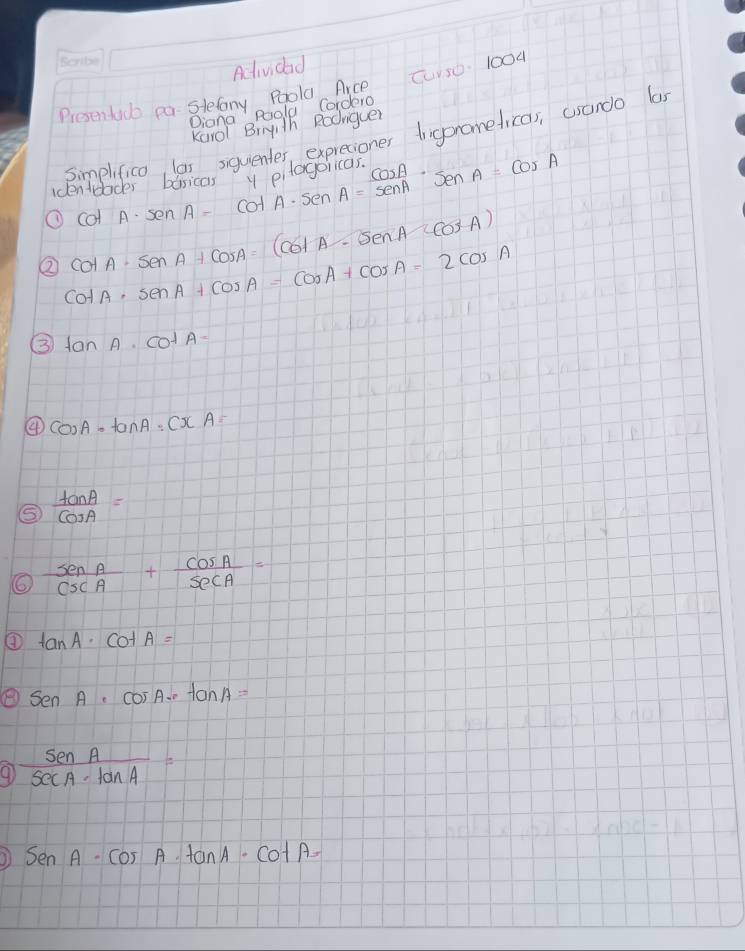 Scribe
Actividad
Presentado por Stefany Paola Arce Curso. 1004
Diana Paola Cordero
Karol Briyith Rodriguez
Simplifico las siguientes expreciones trigonometricas, usando las
identidades básicas y pitagoricas.
① cot A · sen A = cot A · sen A = cosA/senA · sen A = cos A
② cot A · sen A + cosA = (cot A - senA (cosA)
cot A · sen A + cosA = cosA + cosA = 2 cos A
③ tan A · cot A =
④ cosA · tanA · csc A =
⑤ tanA/cosA =
⑥ sen A/csc A + cosA/secA =
⑦ tanA · cot A =
⑧ sen A · cosA · tanA =
⑨ sen A/secA · tan A =
sen A · cos A · tanA · cot A =